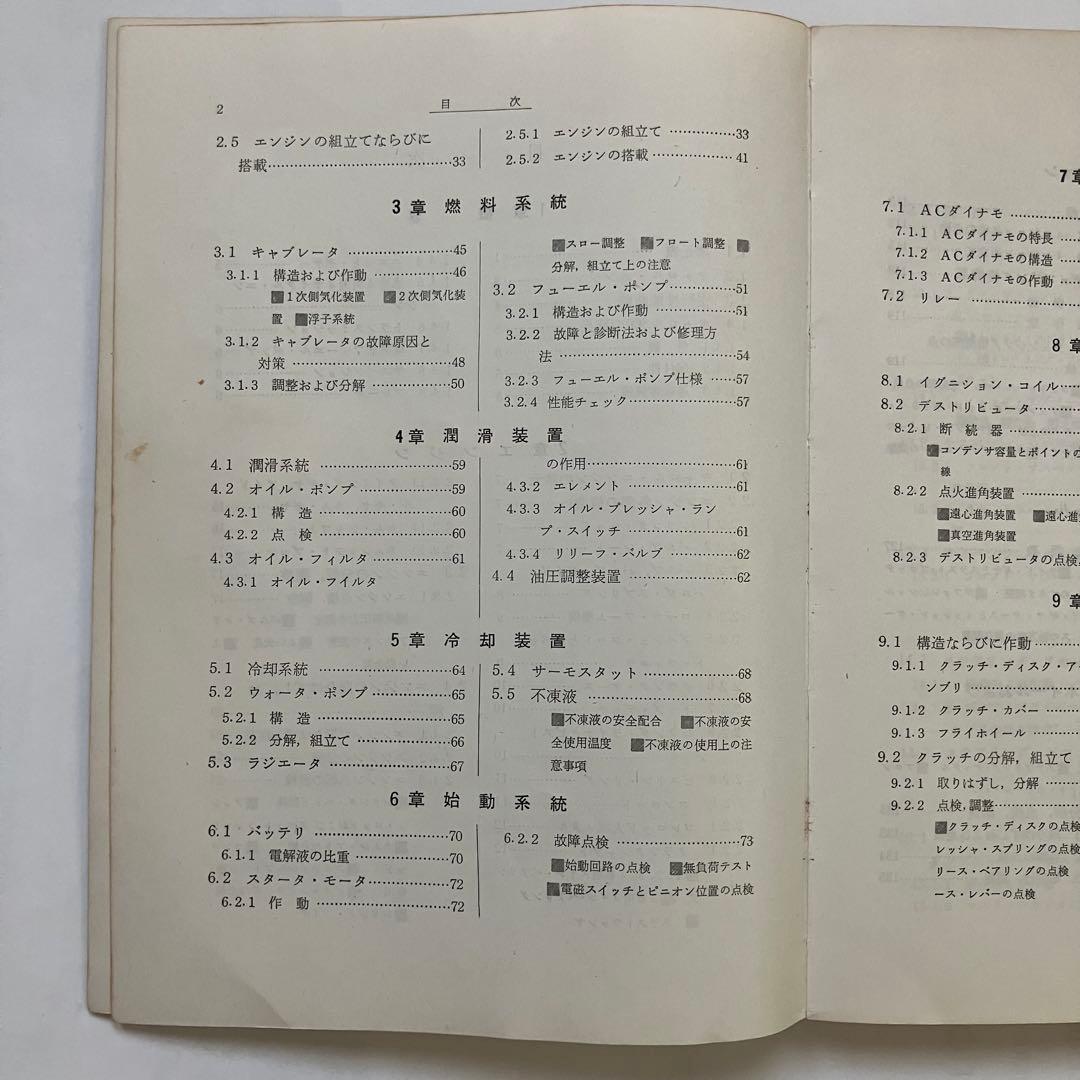 2
目　次
2.5 エンジンの組立てならびに
搭載……………………………33
2.5.1 エンジンの組立て……………33
2.5.2 エンジンの搭載………………41
3章 燃料系統
3.1 キャブレータ…………………45
3.1.1 構造および作動……………46
■1次側気化装置 ■2次側気化装
置 ■浮子系統
3.1.2 キャブレータの故障原因と
対策……………………………48
3.1.3 調整および分解……………50
■スロー調整 ■フロート調整 ■
分解，組立て上の注意
3.2 フューエル・ポンプ…………51
3.2.1 構造および作動……………51
3.2.2 故障と診断法および修理方
法………………………………54
3.2.3 フューエル・ポンプ仕様……57
3.2.4 性能チェック………………57
4章 潤滑装置
4.1 潤滑系統………………………59
4.2 オイル・ポンプ………………59
4.2.1 構　造………………………60
4.2.2 点　検………………………60
4.3 オイル・フィルタ……………61
4.3.1 オイル・フイルタ
の作用…………………………61
4.3.2 エレメント…………………61
4.3.3 オイル・プレッシャ・ラン
プ・スイッチ…………………61
4.3.4 リリーフ・バルブ…………62
4.4 油圧調整装置…………………62
5章 冷却装置
5.1 冷却系統………………………64
5.2 ウォータ・ポンプ……………65
5.2.1 構　造………………………65
5.2.2 分解，組立て………………66
5.3 ラジエータ……………………67
5.4 サーモスタット………………68
5.5 不凍液…………………………68
■不凍液の安全配合 ■不凍液の安
全使用温度 ■不凍液の使用上の注
意事項
6章 始動系統
6.1 バッテリ………………………70
6.1.1 電解液の比重………………70
6.2 スタータ・モータ……………72
6.2.1 作　動………………………72
6.2.2 故障点検……………………73
■始動回路の点検 ■無負荷テスト
■電磁スイッチとピニオン位置の点検
7章
7.1 ACダイナモ……………
7.1.1 ACダイナモの特長……
7.1.2 ACダイナモの構造……
7.1.3 ACダイナモの作動……
7.2 リレー……………
8章
8.1 イグニション・コイル……
8.2 デストリビュータ……………
8.2.1 断続器……………
■コンデンサ容量とポイントの
線
8.2.2 点火進角装置……………
■遠心進角装置 ■遠心
■真空進角装置
8.2.3 デストリビュータの点検，
9章
9.1 構造ならびに作動……………
9.1.1 クラッチ・ディスク・ア
ンブリ……………
9.1.2 クラッチ・カバー……………
9.1.3 フライホイール……………
9.2 クラッチの分解，組立て
9.2.1 取りはずし，分解……
9.2.2 点検，調整……………
■クラッチ・ディスクの点検
レッシャ・スプリングの点検
リース・ベアリングの点検
ース・レバーの点検